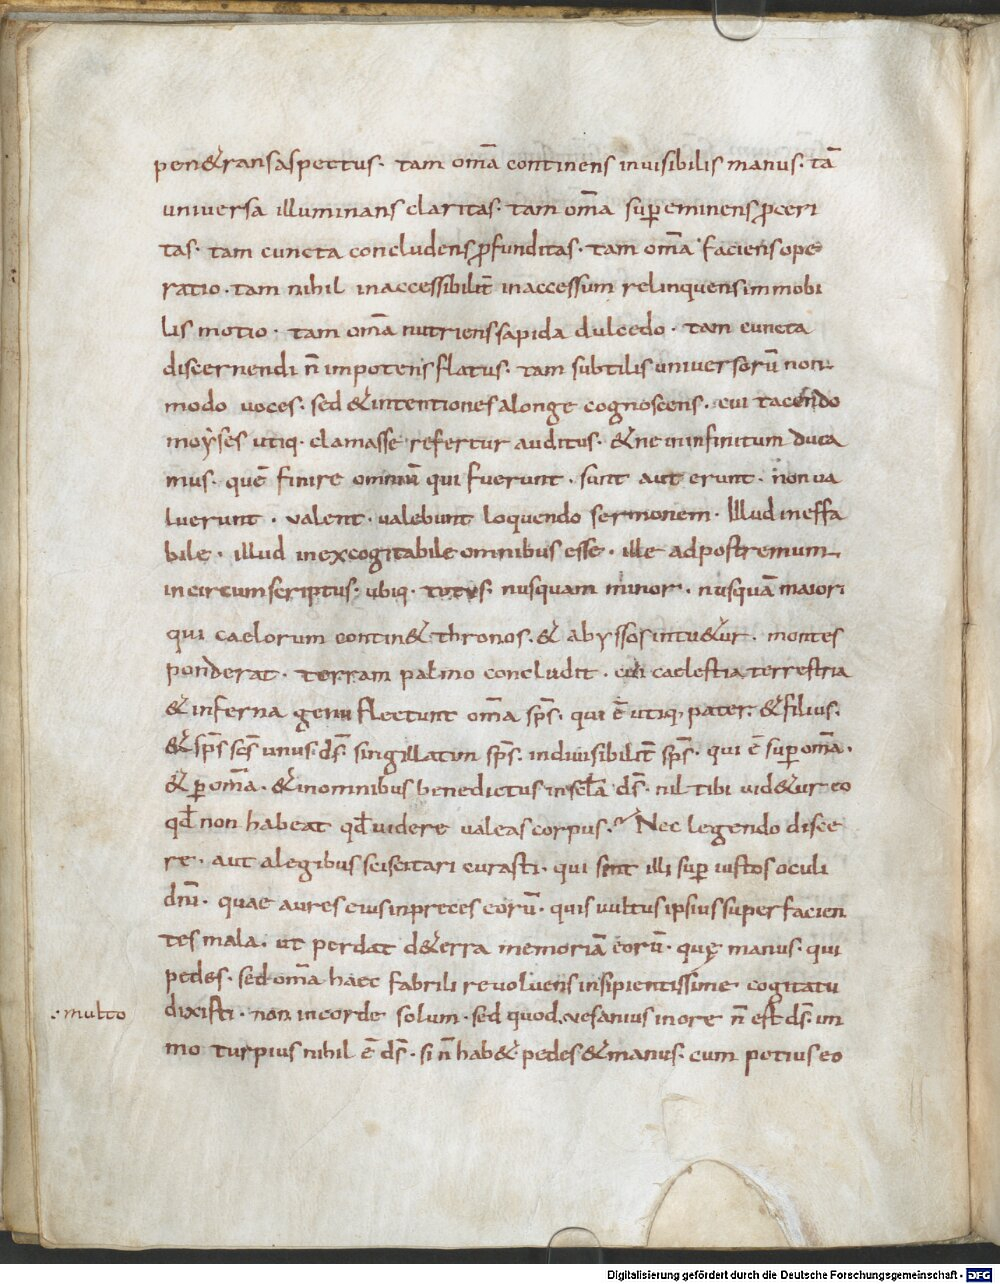 pen&ransaspectus· tam om̅a continens inuisibilis manus· ta̅
uniuersa illuminans claritas· tam om̅a sup̱eminens p̱ceri
tas· tam cuncta concludens p̱funditas· tam om̅a faciens ope
ratio· tam nihil inaccessibilit̅ inaccessum relinquens inmobi
lis motio· tam om̅a nutriens sapida dulcedo· tam cuncta
discernendi n̅ impotens flatus· tam subtilis uniuersoru̅ non
modo uoces· sed & intentiones alonge cognoscens· cui tacendo
moyses utiq· clamasse refertur auditus· & ne ininfinitum duca
mus· que̅ finire omniu̅ qui fuerunt· sunt aut erunt· non ua
luerunt· ualent· ualebunt loquendo sermonem· Illud ineffa
bile· illud inexcogitabile omnibus esse· ille adpostremum
incircumscriptus· ubiq· totus· nusquam minor· nusqua̅ maior
qui caelorum contin& thronos· & abyssos intu&ur· montes
ponderat· terram palmo concludit· cui caelestia terrestria
& inferna genu flectunt om̅a sp̅s· qui e̅ utiq, pater· & filius·
& sp̅s sc̅s unus· d̅s· singillatim sp̅s· indiuisibilit̅ sp̅s· qui e̅ sup̱ om̅a·
& p̱ om̅a· & inomnibus benedictus insc̅la d̅s· nil tibi uid&ur eo
qd̅ non habeat qd̅ uidere ualeas corpus· Nec legendo disce
re· aut alegibus sciscitari curasti· qui sint illi sup̱ iustos oculi
dn̅i· quae aures eius inpreces eoru̅· quis uultus ipsius super facien
tes mala· ut perdat d&erra memoria̅ eoru̅· quę manus· qui
pedes· sed om̅a haec fabrili reuoluens insipientissime cogitatu
·: multo dixisti· non incorde solum· sed quod uesanius inore n̅ est d̅s· im
mo turpius nihil e̅ d̅s· si n̅ hab& pedes & manus· cum potius eo
Digitalisierung gefördert durch die Deutsche Forschungsgemeinschaft - DFG